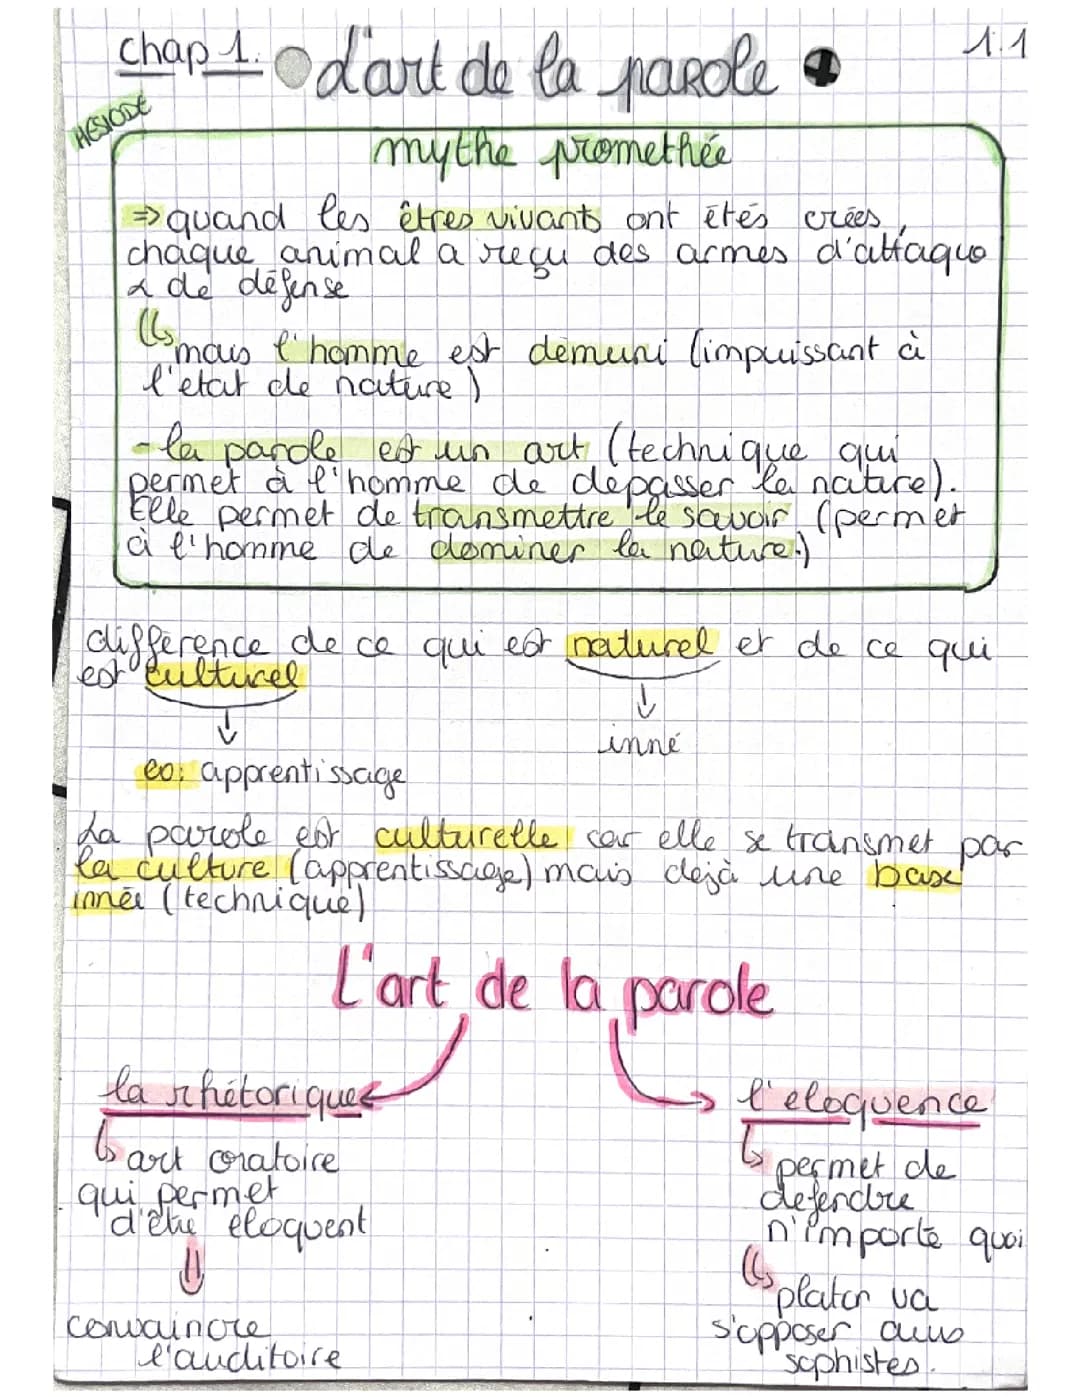 chap 1. L'art de la parole 1.1
HESIODE
mythe promethée
⇒ quand les êtres vivants ont étés crées,
chaque animal a reçu des armes d'attaque
& de défense
mais l'homme est démuni (impuissant à
l'etat de nature)
- la parole est un art (technique qui
permet à l'homme de dépasser la nature).
Elle permet de transmettre le savoir (permet
à l'homme de dominer la nature.)
différence de ce qui est naturel et de ce qui
est culturel
↓ ↓
inné
eo: apprentissage
La parole est culturelle car elle se transmet par
la culture (apprentissage) mais dejà une base
innée (technique)
L'art de la parole
la rhétorique l'eloquence
art oratoire
qui permet
d'être eloquent
convaincre
l'auditoire
permet de
defendre
n'importe quoi
platon va
s'opposer aux
sophistes.